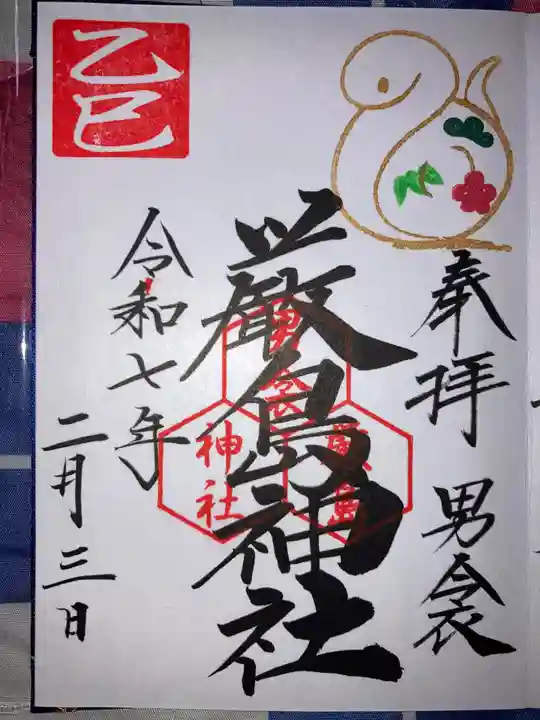 奉拝
男衾
厳島神社
男衾
厳島
神社
令和七年
二月三日
乙巳